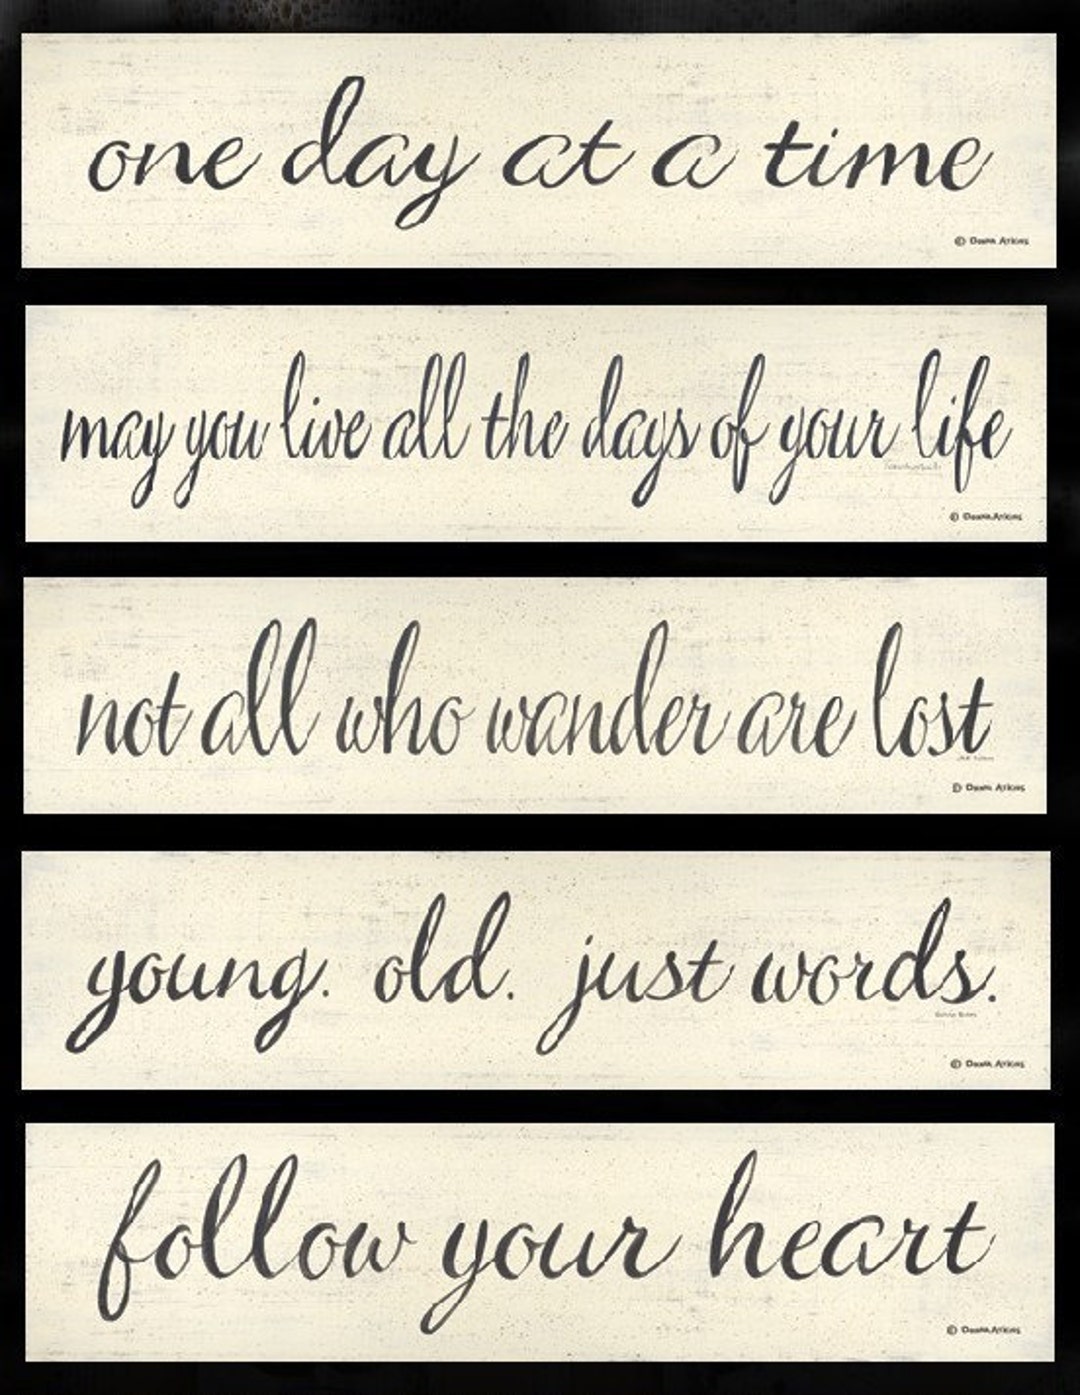 one day at a time
© Donna Atkins
may you live all the days of your life
© Donna Atkins
not all who wander are lost
© Donna Atkins
young. old. just words.
© Donna Atkins
follow your heart
© Donna Atkins